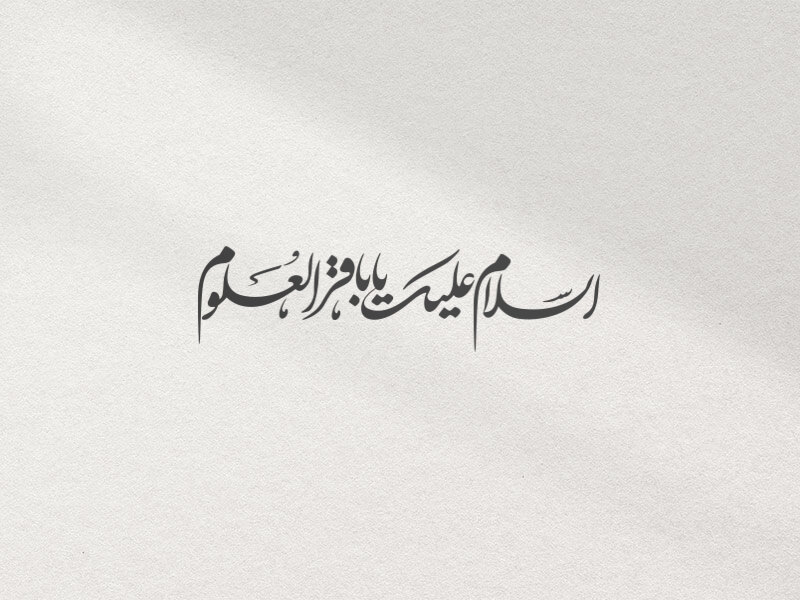 السلام علیک یا باقر العلوم